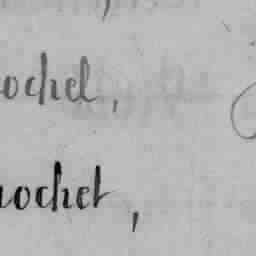 ochel,
ochet,